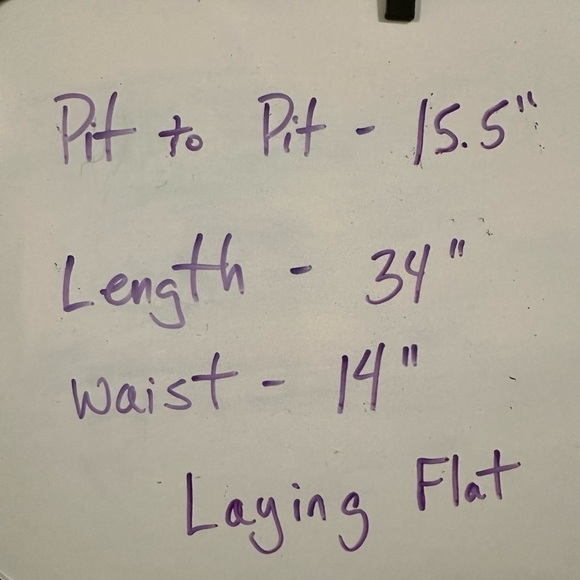 Pit to Pit - 15.5"
Length - 34"
Waist - 14"
Laying Flat